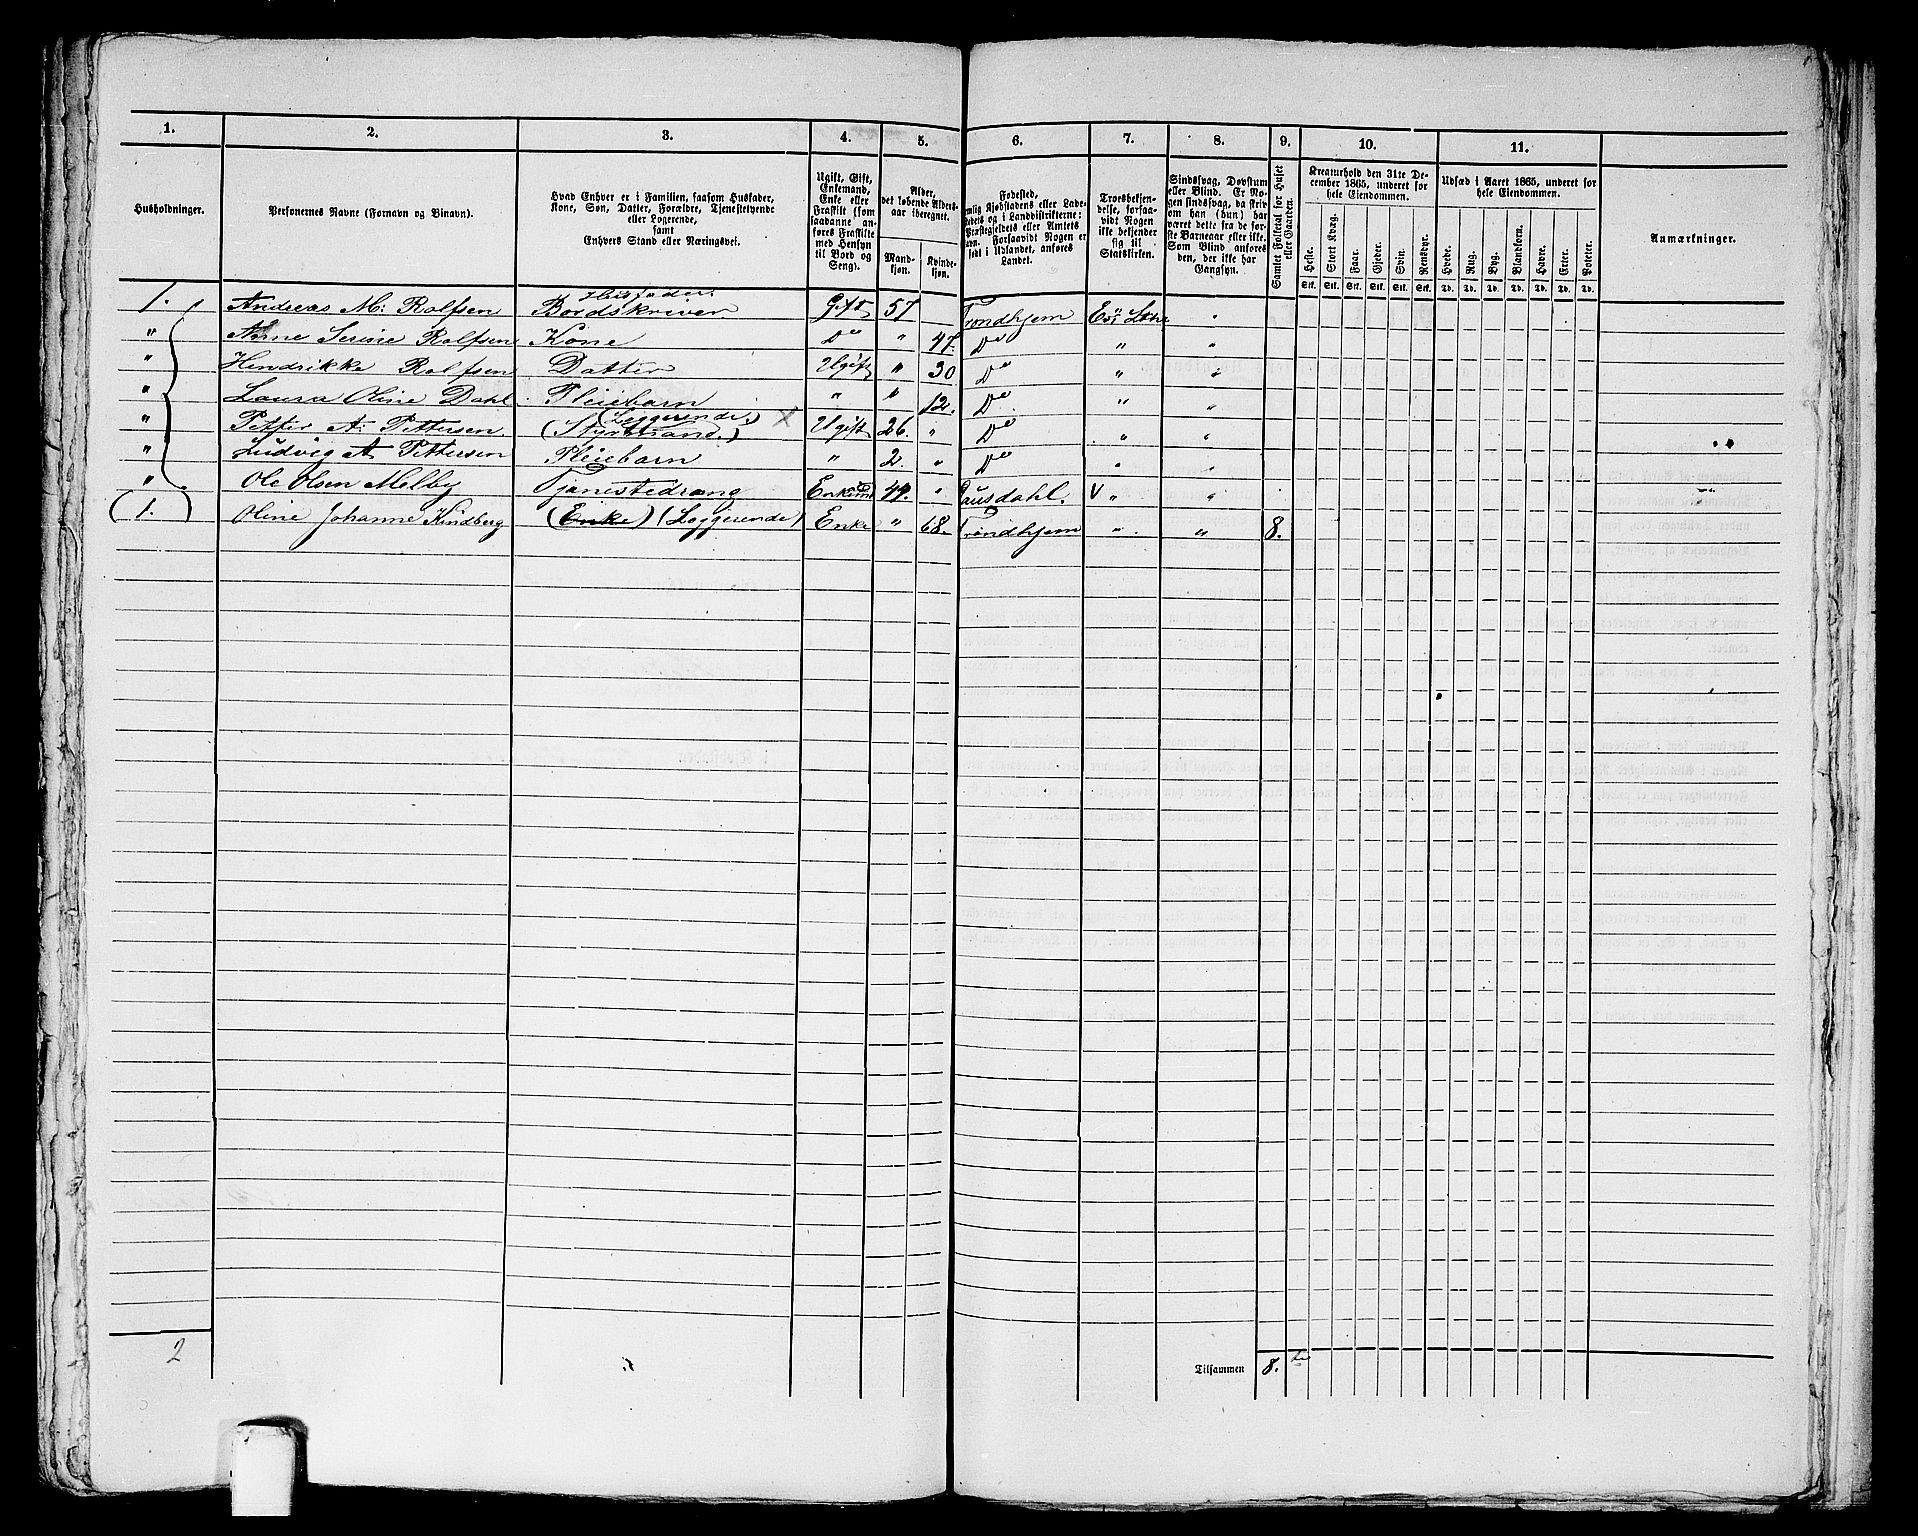 1. 2. 3. 4. 5. 6. 7. 8. 9. 10. 11.
Husholdninger.
Personernes Navne (Fornavn og Binavn).
Hvad Enhver er i Familien, saasom Husfader,
Kone, Søn, Datter, Forældre, Tjenestetyende
eller Logerende,
samt
Enhvers Stand eller Næringsvei.
Ugift, Gift,
Enkemand,
Enke eller
Fraskilt (som
saadanne an-
føres Fraskilte
med Hensyn
til Bord og
Seng).
Alder,
det løbende Alders-
aar iberegnet.
Mand-
kjøn.
Kvinde-
kjøn.
Fødested,
nemlig Kjøbstadens eller Lade-
stedets og i Landdistrikterne:
Præstegjeldets eller Amtets
Navn. Forsaavidt Nogen er
født i Udlandet, anføres
Landet.
Troesbekjen-
delse, forsaa-
vidt Nogen
ikke bekjender
sig til
Statskirken.
Sindssvag, Døvstum
eller Blind. Er No-
gen sindssvag, da skriv
om han (hun) har
været dette fra de før-
ste Barneaar eller ikke.
Som Blind anføres
den, der ikke har
Gangsyn.
Samlet Folketal for Huset
eller Gaarden.
Kreaturhold den 31te De-
cember 1865, underet for
hele Eiendommen.
Heste. Stort Kvæg. Faar. Gjeder. Svin. Rensdyr.
Stk. Stk. Stk. Stk. Stk. Stk.
Udsæd i Aaret 1865, underet for
hele Eiendommen.
Hvede. Rug. Byg. Blandkorn. Havre. Erter. Poteter.
Td. Td. Td. Td. Td. Td. Td.
Anmærkninger.
1. Andreas M: Rolfsen Husfader. Bordskriver Gift 57 Trondhjem "
" Anne Serine Rolfsen Kone Do " 47. Do " "
" Hendrikke Rolfsen Datter Ugift " 30 Do " "
" Laura Oline Dahl. Pleiebarn " " 12. Do. " "
" Petter A: Pettersen. (Loggerende.) (Styrmand.) Ugift 26. " Do " "
" Ludvig A Pettersen Pleiebarn " 2. " Do " "
" Ole Olsen Melby Tjenestedreng Enkemd 49. " Gausdahl. V " "
(1.) Oline Johanne Kindberg (Enke) (Loggerende) Enke " 68. Trondhjem " " 8.
2
Tilsammen 8.